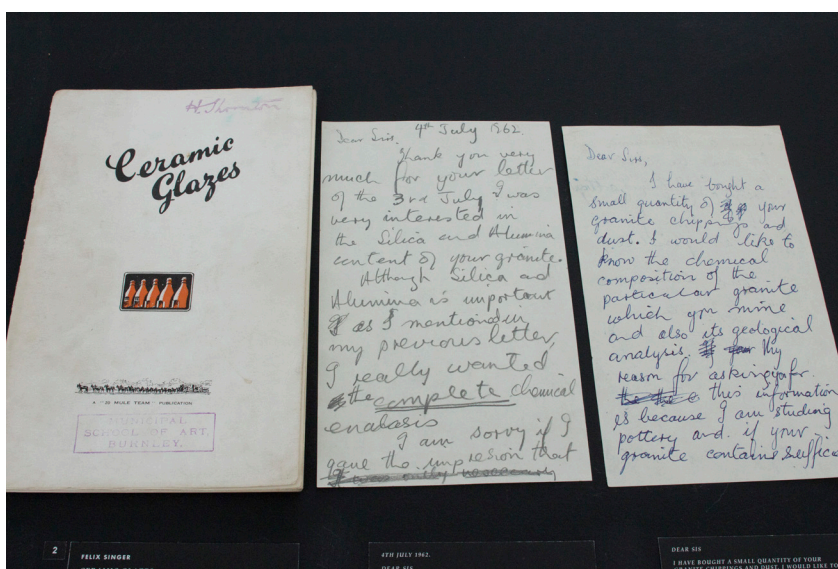 H. Thornton
Ceramic
Glazes
A "20 MULE TEAM" PUBLICATION
MUNICIPAL
SCHOOL OF ART,
BURNLEY.
4th July 1962.
Dear Sirs,
Thank you very
much for your letter
of the 3rd July I was
very interested in
the Silica and Alumina
content of your granite.
Although Silica ad
Alumina is important
as I mentioned in
my previous letter,
I really wanted
the complete chemical
analasis
I am sorry if I
gave the impresion that
it was only necessary
Dear Sirs,
I have bought a
small quantity of your
granite chippings and
dust. I would like to
know the chemical
composition of the
particular granite
which you mine
and also its geological
analysis. My
reason for asking for
this information
is because I am studing
pottery and if your
granite contains
2
FELIX SINGER
4TH JULY 1962.
DEAR SIS
DEAR SIS
I HAVE BOUGHT A SMALL QUANTITY OF YOUR
GRANITE CHIPPINGS AND DUST. I WOULD LIKE TO